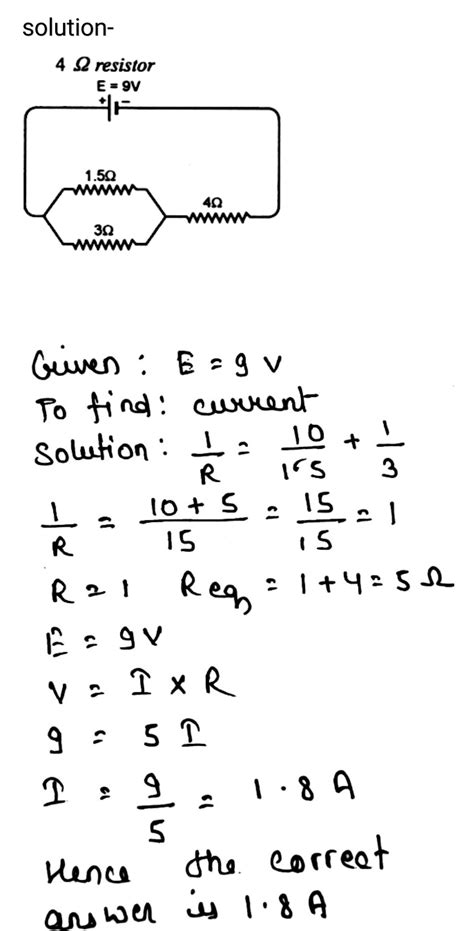 solution-
4 Ω resistor
E = 9V
+ -
1.5Ω
4Ω
3Ω
Given : E = 9 V
To find : current
Solution : 1/R = 10/15 + 1/3
1/R = 10 + 5/15 = 15/15 = 1
R = 1 Req = 1 + 4 = 5 Ω
E = 9V
V = I × R
9 = 5 I
I = 9/5 = 1.8 A
Hence the correct
answer is 1.8 A